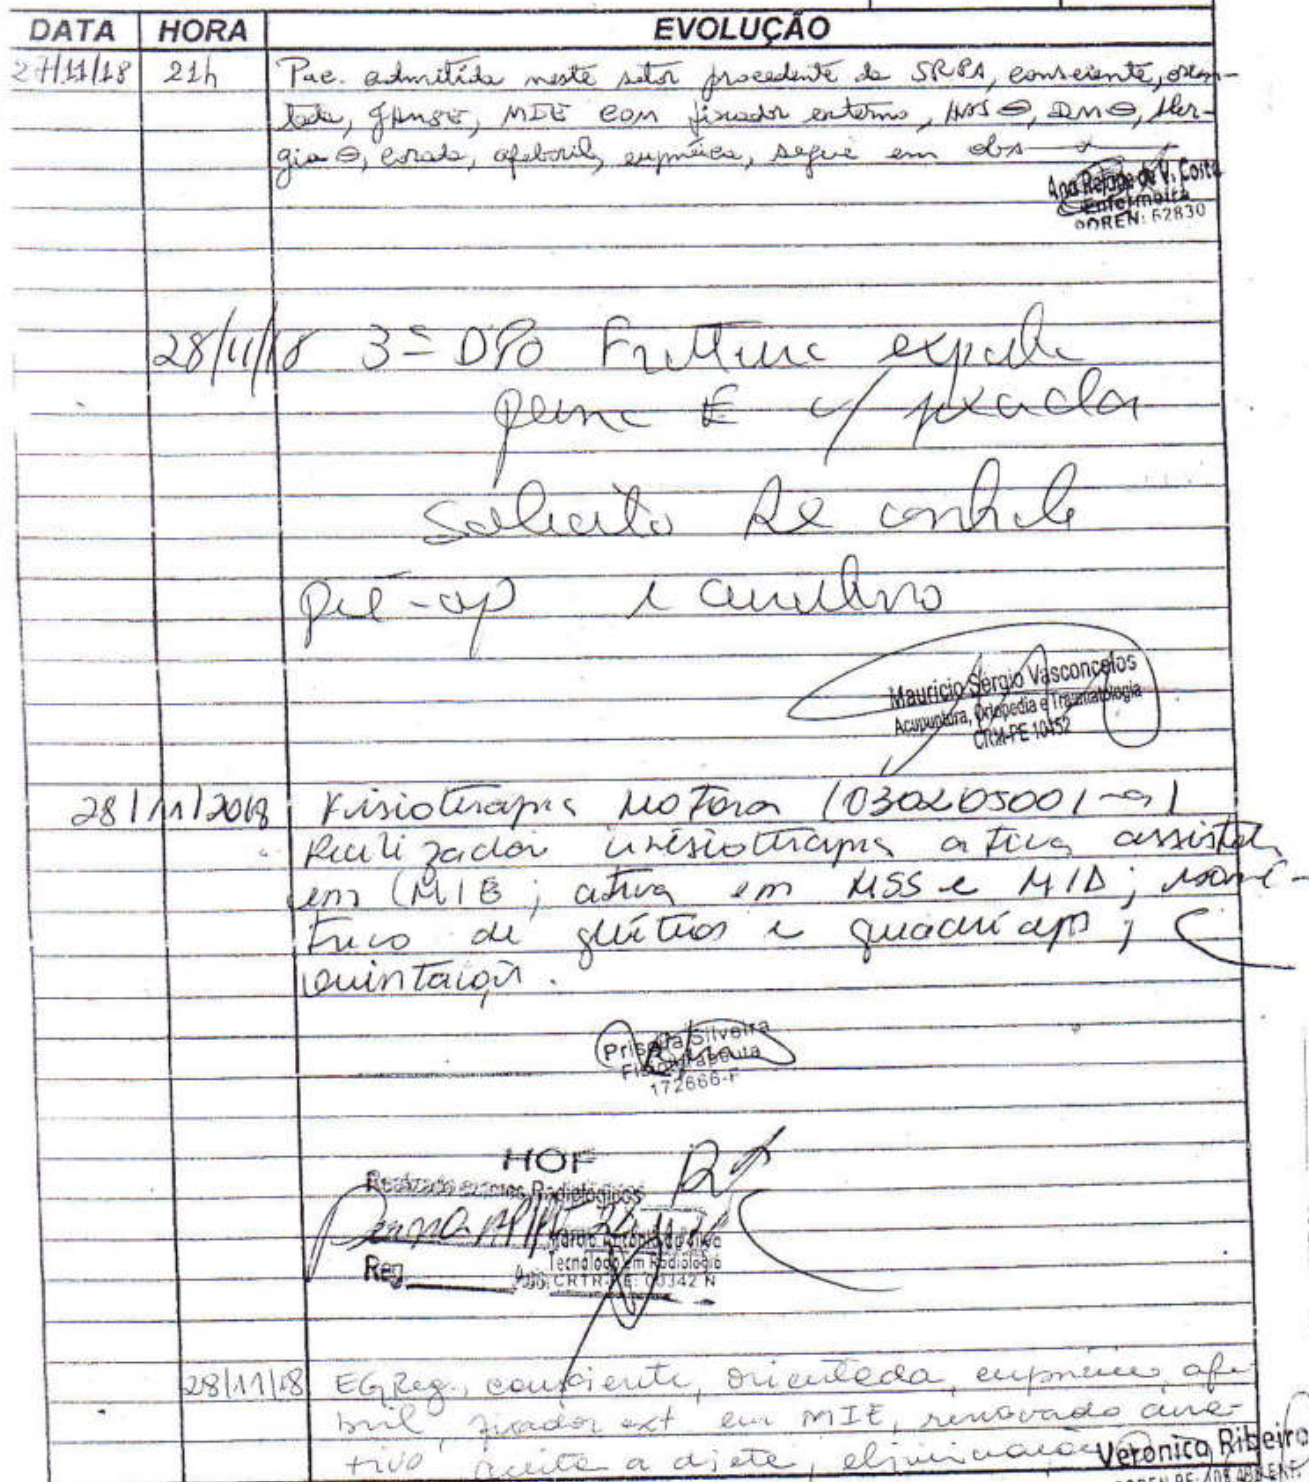 DATA HORA EVOLUÇÃO
27/11/18 21h Pac. admitida neste setor procedente da SRPA, consciente, orien-
tada, MIE com fixador externo, HAS ⊖, DM ⊖, Aler-
gia ⊖, corada, afebril, eupnéica, segue em obs
Ana Rejane de V. Costa
Enfermeira
COREN: 62830
28/11/18 3º DPO Fratura exposta
perna E c/ fixador
Solicito Rx controle
pré-op e curativo
Mauricio Sergio Vasconcelos
Acupuntura, Ortopedia e Traumatologia
CRM-PE 10452
28/11/2018 Fisioterapia Motora
Realizador cinesioterapia ativa assistida
em MIE; ativa em MSS e MID; isomé-
trico de glúteos e quadríceps;
Priscila Silveira
Fisioterapeuta
172666-F
HOF RX
Realizado exames Radiológicos
Perna
Marcio Antonio da Silva
Tecnólogo em Radiologia
Reg. CRTR-PE: 00342 N
28/11/18 EGReg., consciente, orientada, eupneica, afe-
bril, fixador ext em MIE, renovado cura-
tivo aceita a dieta, eliminações
Veronica Ribeiro